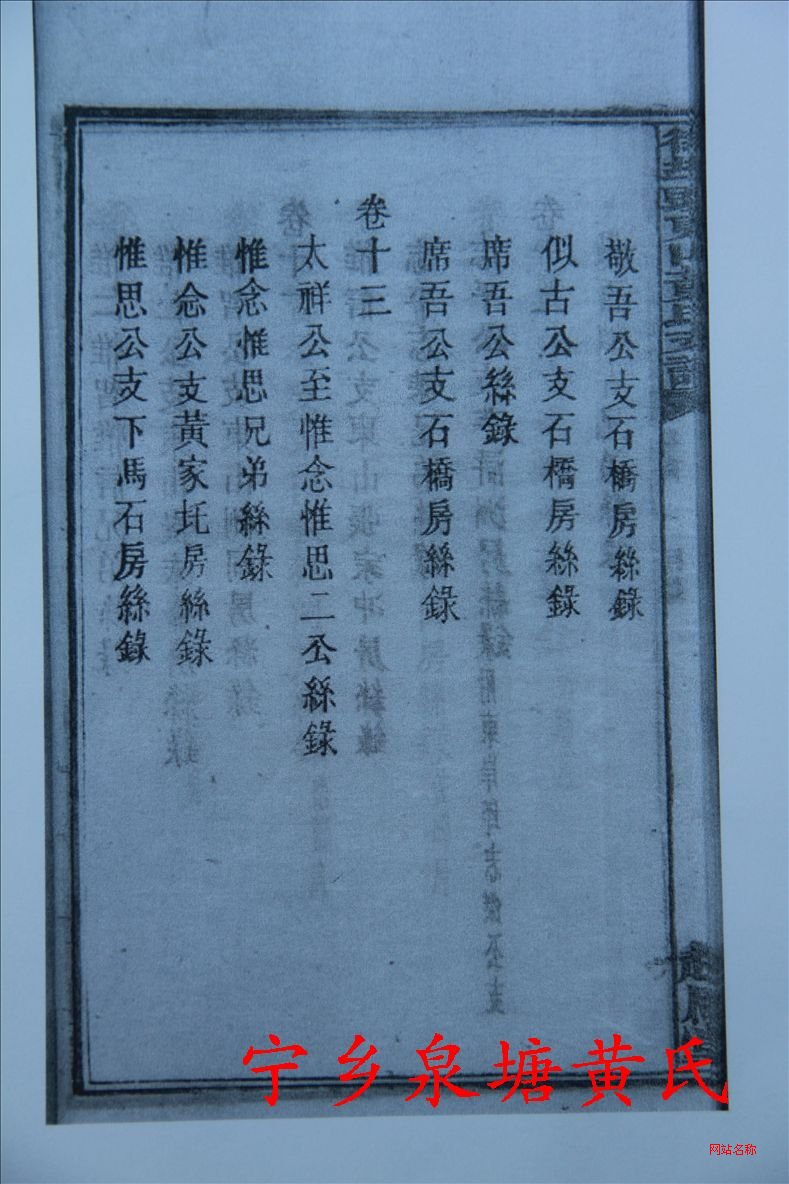 敬吾公支石橋房絲錄
似古公支石橋房絲錄
席吾公絲錄
席吾公支石橋房絲錄
卷十三
太祥公至惟念惟思二公絲錄
惟念惟思兄弟絲錄
惟念公支黃家圫房絲錄
惟思公支下馮石房絲錄
宁乡泉塘黄氏
网站名称